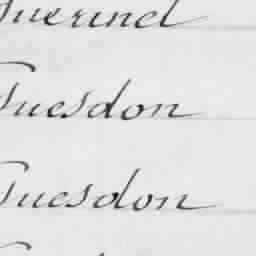 Guerinel
Guesdon
Guesdon